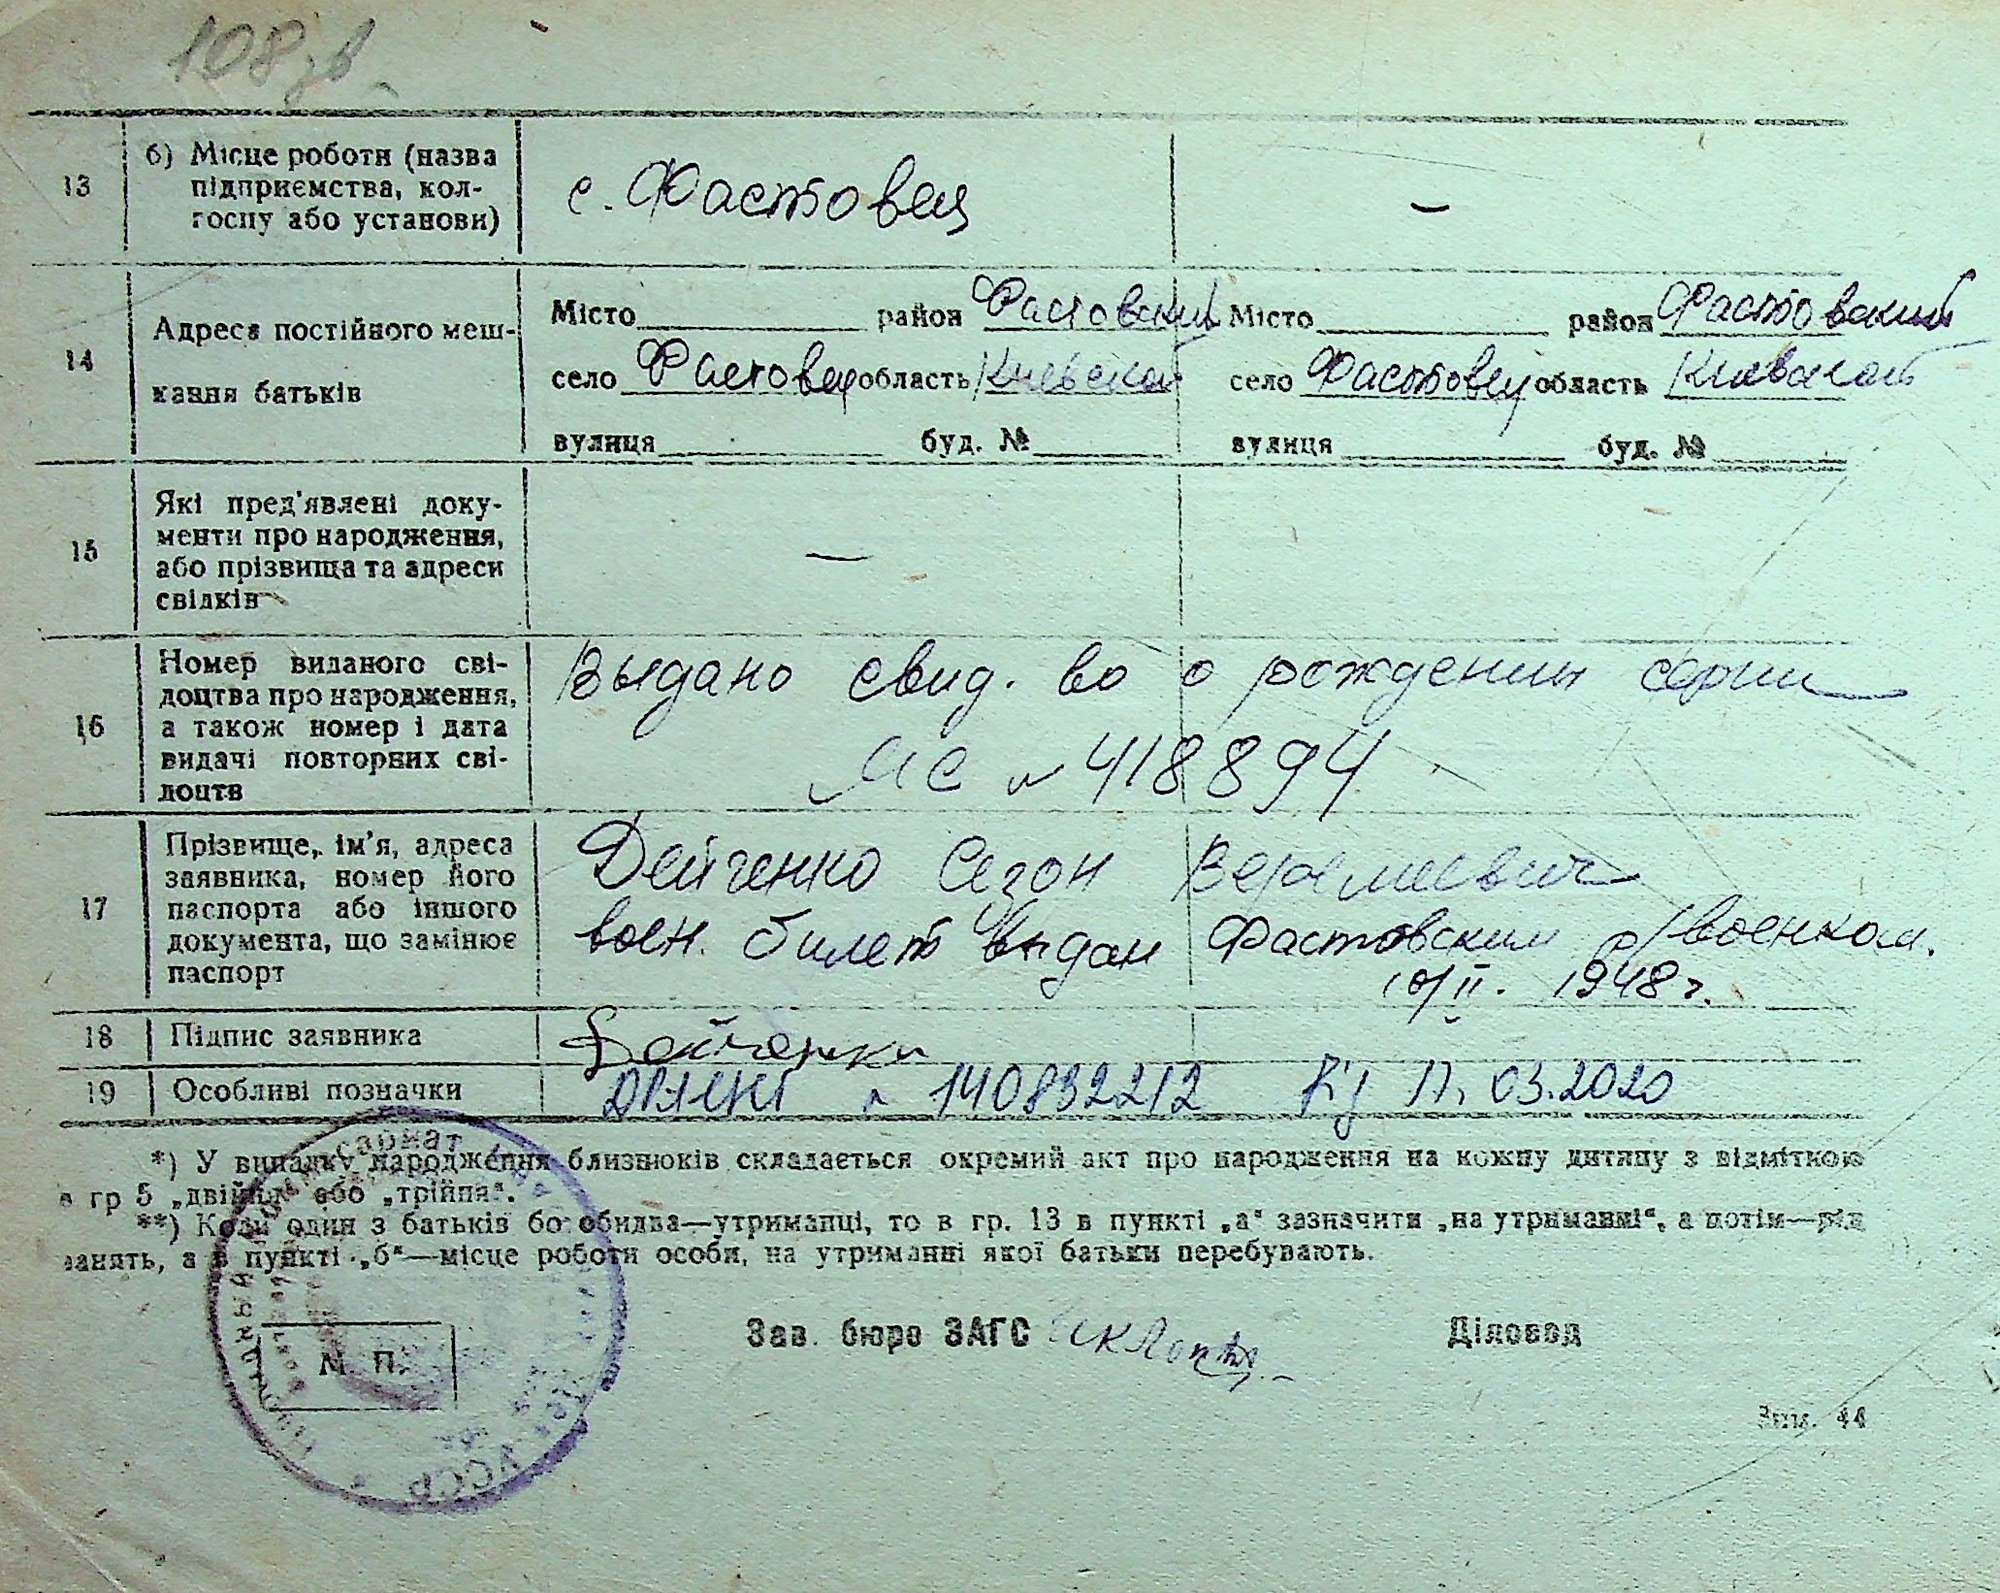 108 зв.
13
б) Місце роботи (назва
підприємства, кол-
госпу або установи)
с. Фастовец
—
14
Адреса постійного меш-
кання батьків
Місто район Фастовский
село Фастовец область Киевская
вулиця буд. №
Місто район Фастовский
село Фастовец область Киевская
вулиця буд. №
15
Які пред'явлені доку-
менти про народження,
або прізвища та адреси
свідків
—
16
Номер виданого сві-
доцтва про народження,
а також номер і дата
видачі повторних сві-
доцтв
Выдано свид. во о рождении серии
№ 418894
17
Прізвище, ім'я, адреса
заявника, номер його
паспорта або іншого
документа, що замінює
паспорт
Дейченко Сезон
воен. билет выдан Фастовским р/военком.
10/II. 1948 г.
18
Підпис заявника
Дейченко
19
Особливі позначки
№ 140832212 03.2020
*) У випадку народження близнюків складається окремий акт про народження на кожну дитину з відміткою
в гр 5 „двійня" або „трійня".
**) Коли один з батьків або обидва—утриманці, то в гр. 13 в пункті „а" зазначити „на утриманні", а потім—рід
занять, а в пункті „б"—місце роботи особи, на утриманні якої батьки перебувають.
Зав. бюро ЗАГС
Діловод
М. П.
АССР
Зам. 44